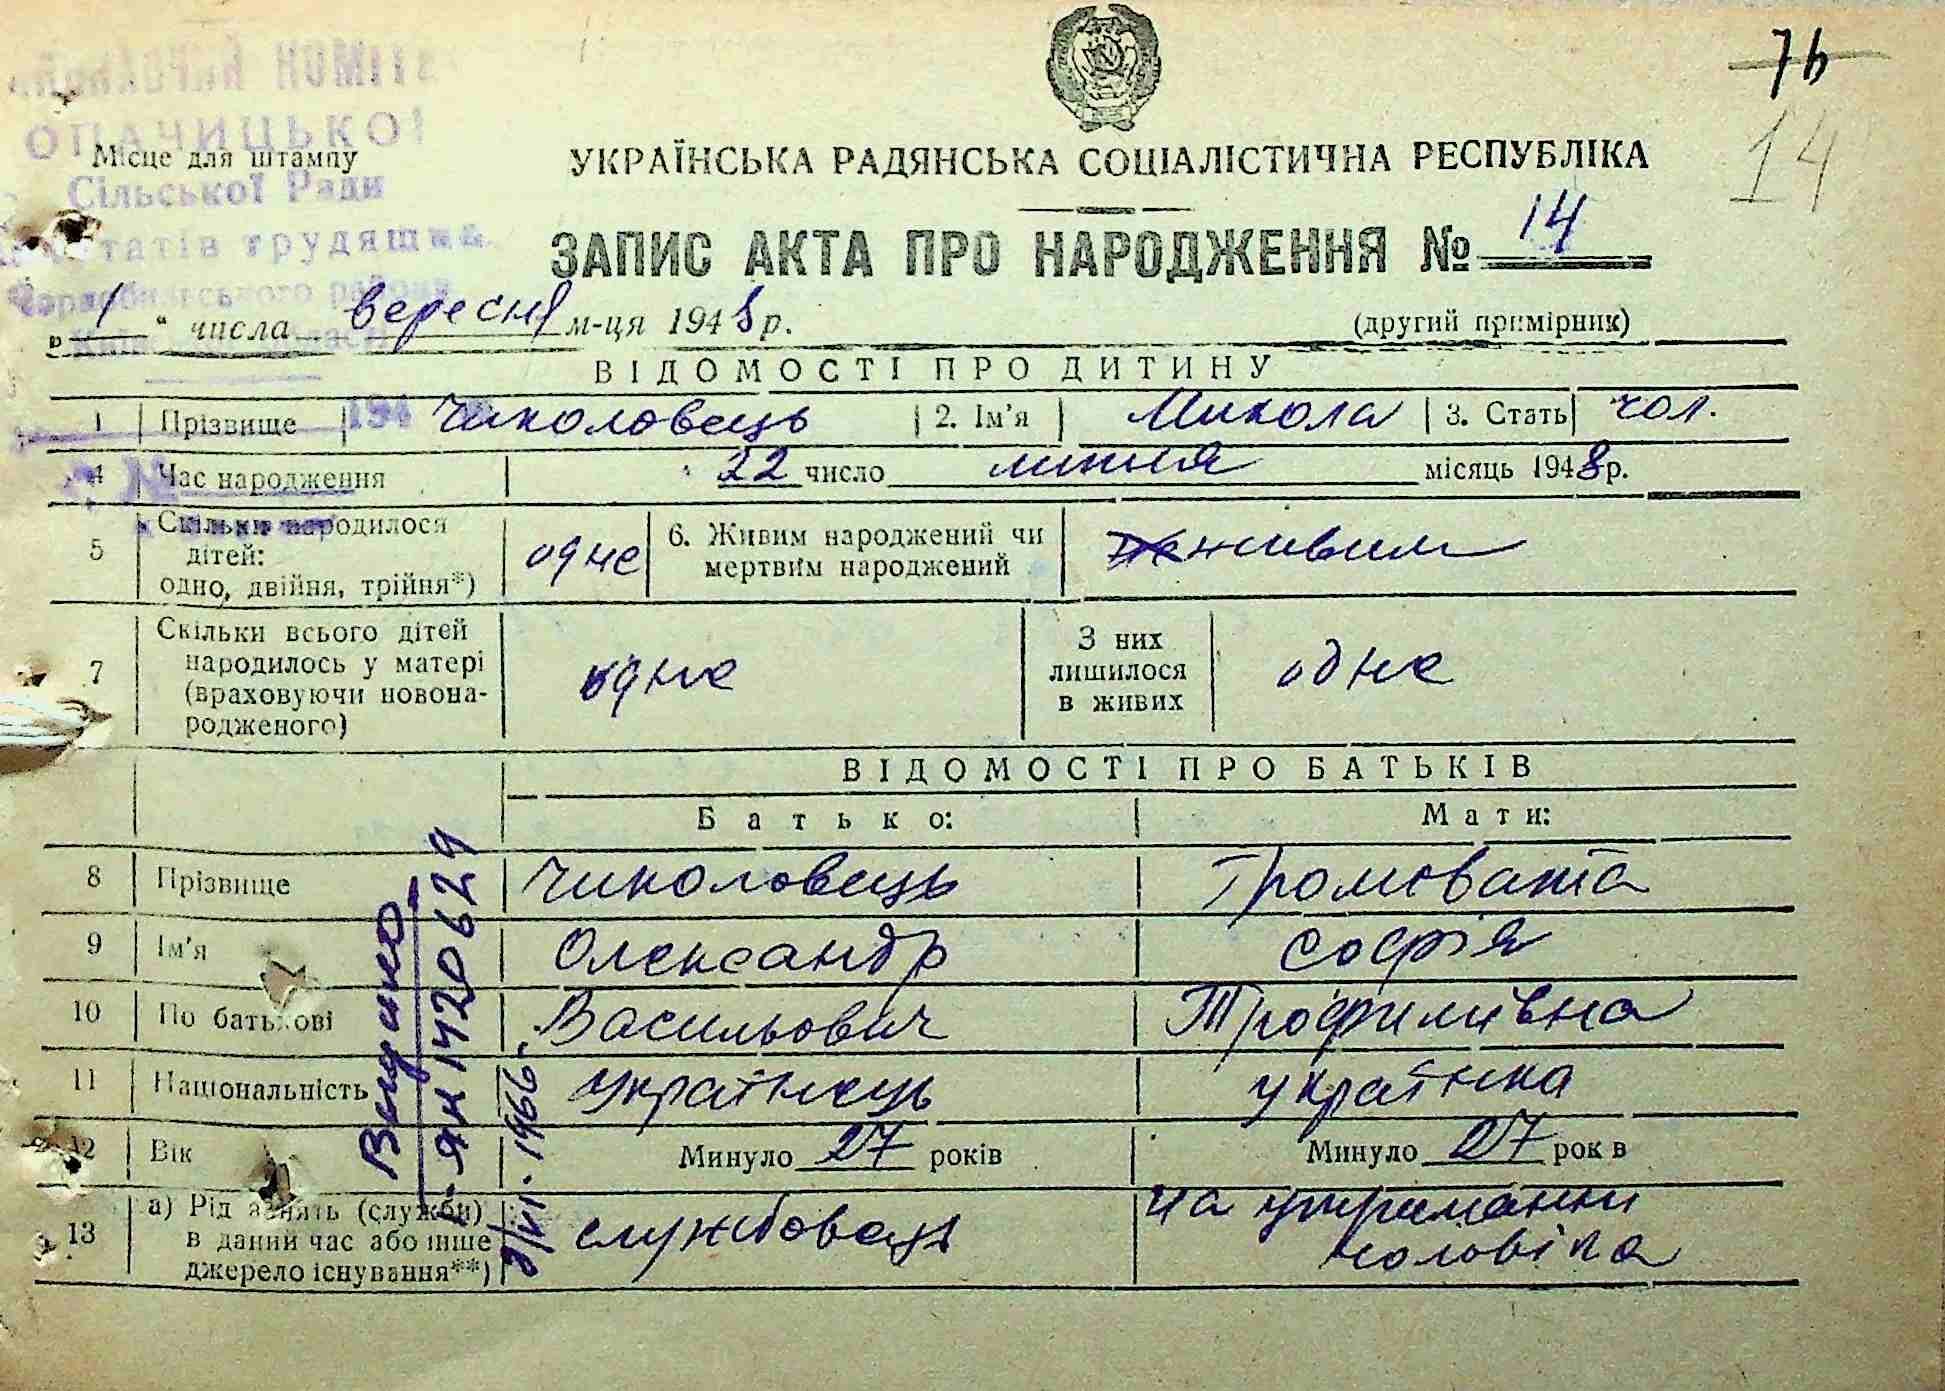 76
14
ОПАЧИЦЬКОЇ
Місце для штампу
Сільської Ради
УКРАЇНСЬКА РАДЯНСЬКА СОЦІАЛІСТИЧНА РЕСПУБЛІКА
ЗАПИС АКТА ПРО НАРОДЖЕННЯ № 14
„ 1 “ числа вересня м-ця 1948 р.
(другий примірник)
ВІДОМОСТІ ПРО ДИТИНУ
1 Прізвище Чиколовець 2. Ім'я Микола 3. Стать чол.
4 Час народження 22 число липня місяць 1948 р.
5 Скільки народилося дітей: одно, двійня, трійня*) одне 6. Живим народжений чи мертвим народжений живим
7 Скільки всього дітей народилось у матері (враховуючи новонародженого) одне З них лишилося в живих одне
ВІДОМОСТІ ПРО БАТЬКІВ
Батько: Мати:
8 Прізвище Чиколовець Громовата
9 Ім'я Олександр Софія
10 По батькові Васильович Трофимівна
11 Національність українець українка
12 Вік Минуло 27 років Минуло 27 рок в
13 а) Рід занять (служби) в даний час або інше джерело існування**) службовець на утриманні чоловіка
1420629
1966